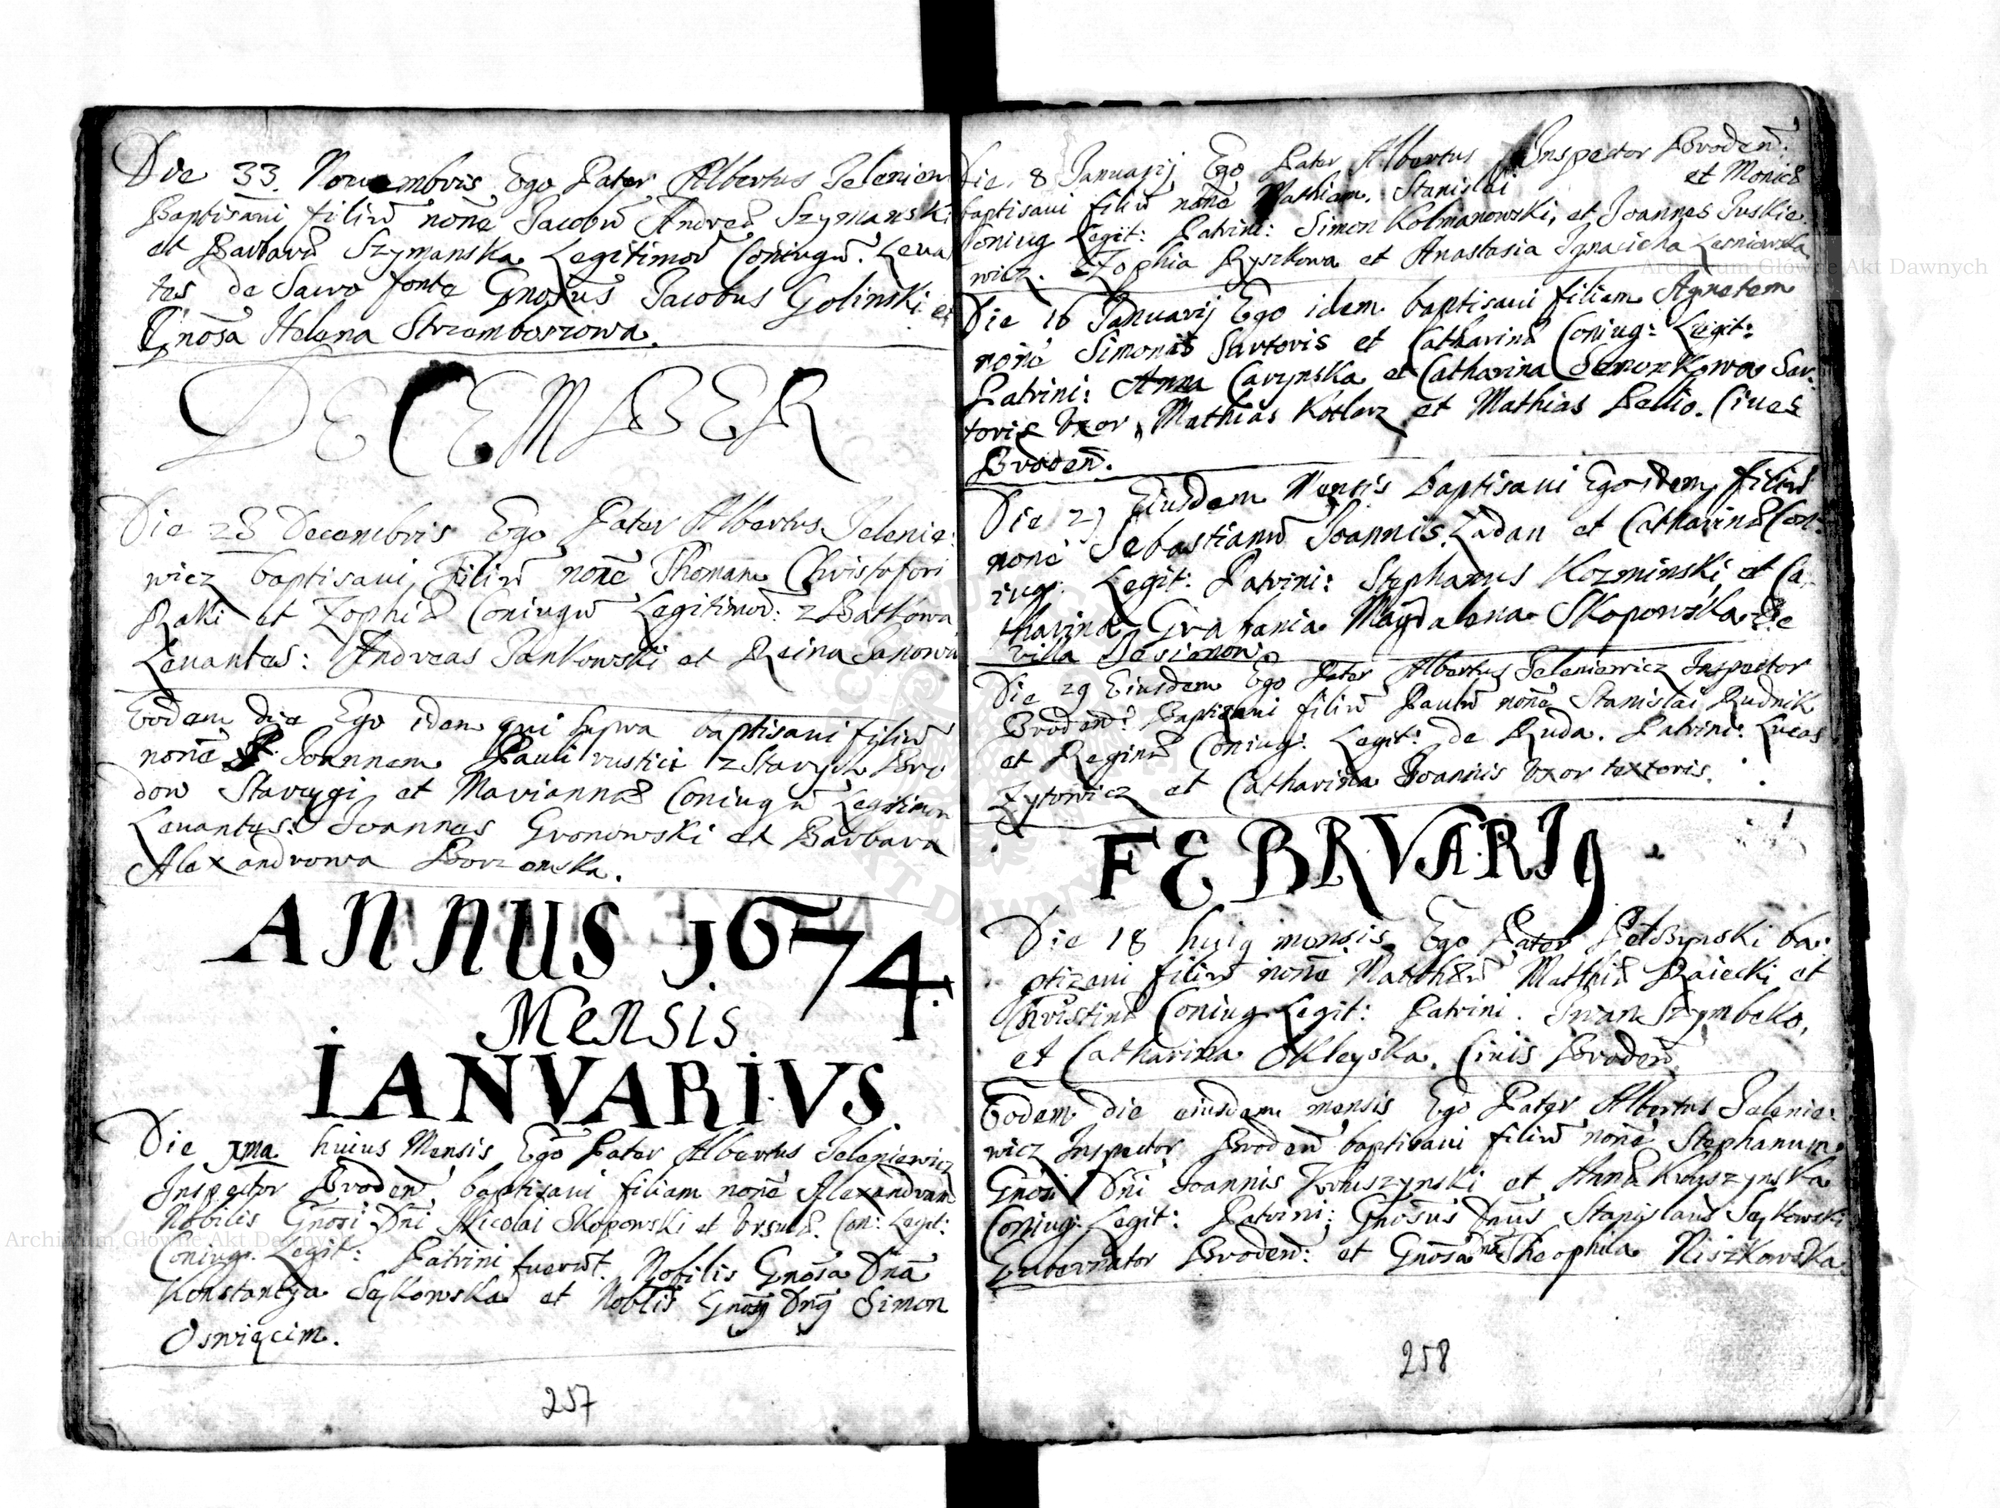 Die 33. Novembris Ego Pater Albertus Jelenien
Baptisavi filiū noīe Jacobū Andreæ Szymanski
et Barbaræ Szymanska Legitimorū Coniugū. Leva
tes de Sacro fonte Gnōsus Jacobus Golinski et
Gnōsa Helena Strzemboszowa.
DECEMBER
Die 28 Decembris Ego Pater Albertus Jelenie:
wicz baptisavi Filiū noīe Thomam Christofori
Raki et Zophiæ Coniugū Legitimorū: z Batkowa
Levantes: Andreas Jankowski et Reina Janowa
Eodem die Ego idem qui supra baptisavi filiū
noīe Joannem Pauli rustici z Starych Bro
dow Starygi et Mariannæ Coniugū Legitimor
Levantes: Joannes Gronowski et Barbara
Alexandrowa Borzemska.
ANNUS 1674.
Mensis
IANVARIVS
Die 1ma huius Mensis Ego Pater Albertus Jeleniewicz
Inspector Broden̄. baptisavi filiam noīe Alexandram
Nobilis Gnōsi Dn̄i Nicolai Skopowski et Ursulæ. Con: Legit:
Coniug: Legit: Patrini fuerūt. Nobilis Gnōsa Dn̄a
Konstantya Sękowska et Noblis Gnōsꝰ Dn̄ꝰ Simon
Oswięcim.
257
Die 8 Januarij Ego Pater Albertus Inspector Broden̄.
baptisavi filiū noīe Mathiam. Stanislai et Monicæ
Coniug Legit: Patrini: Simon Kolmanowski, et Joannes Juskie
wicz. Zophia Ryszkowa et Anastasia Ignacicha Lesniarska
Die 16 Januarij Ego idem baptisavi filiam Agnetem
noīe Simonis Sartoris et Catharinæ Coniug: Legit:
Patrini: Anna Carynska et Catharina Senozkowa Sar:
toris Uxor, Mathias Kotlarz et Mathias Pellio. Cives
Broden̄.
Die 27 Eiusdem Mensis Baptisavi Ego idem filiū
noīe Sebastianū Joannis Zadan et Catharinæ Con:
iug: Legit: Patrini: Stephanus Kozminski, et Ca:
tharina Grabania Magdalena Skopowska de
villa Jasionow
Die 29 Eiusdem Ego Pater Albertus Jeleniewicz Inspector
Broden̄: Baptisavi filiū Paulū noīe Stanislai Rudnik
et Reginæ Coniug: Legit: de Ruda. Patrini: Lucas
Zytowicz et Catharina Joannis Uxor textoris.
FEBRVARIꝰ
Die 18 huiꝰ mensis Ego Pater Pelczynski ba:
ptizavi filiū noīe Matthæū Mathiæ Raiecki et
Christinæ Coniug Legit: Patrini. Iwan Szymbeko,
et Catharina Okleyska. Civis Broden̄.
Eodem die eiusdem mensis Ego Pater Albertus Jelenie:
wicz Inspector Broden̄ baptisavi filiū noīe Stephanum
Gnōsi Dn̄i Joannis Kruszynski et Annæ Kruszynska
Coniug: Legit: Patrini: Gnōsus Dn̄us Stanislaus Sękowski
Gubernator Broden̄: et Gnōsa Dn̄a Theophila Niszkowska
258
Archiwum Główne Akt Dawnych
Archiwum Główne Akt Dawnych